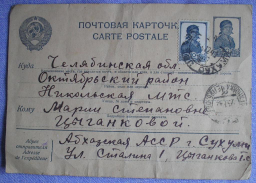 ПОЧТОВАЯ КАРТОЧКА
CARTE POSTALE
Куда Челябинская обл.
Октябрьский район
Никольская МТС
Кому Марии Степановне
Цыганковой.
Адрес отправителя
Adresse de l'expéditeur
Абхазская АССР г. Сухуми
Ул. Сталина 1 Цыганкова